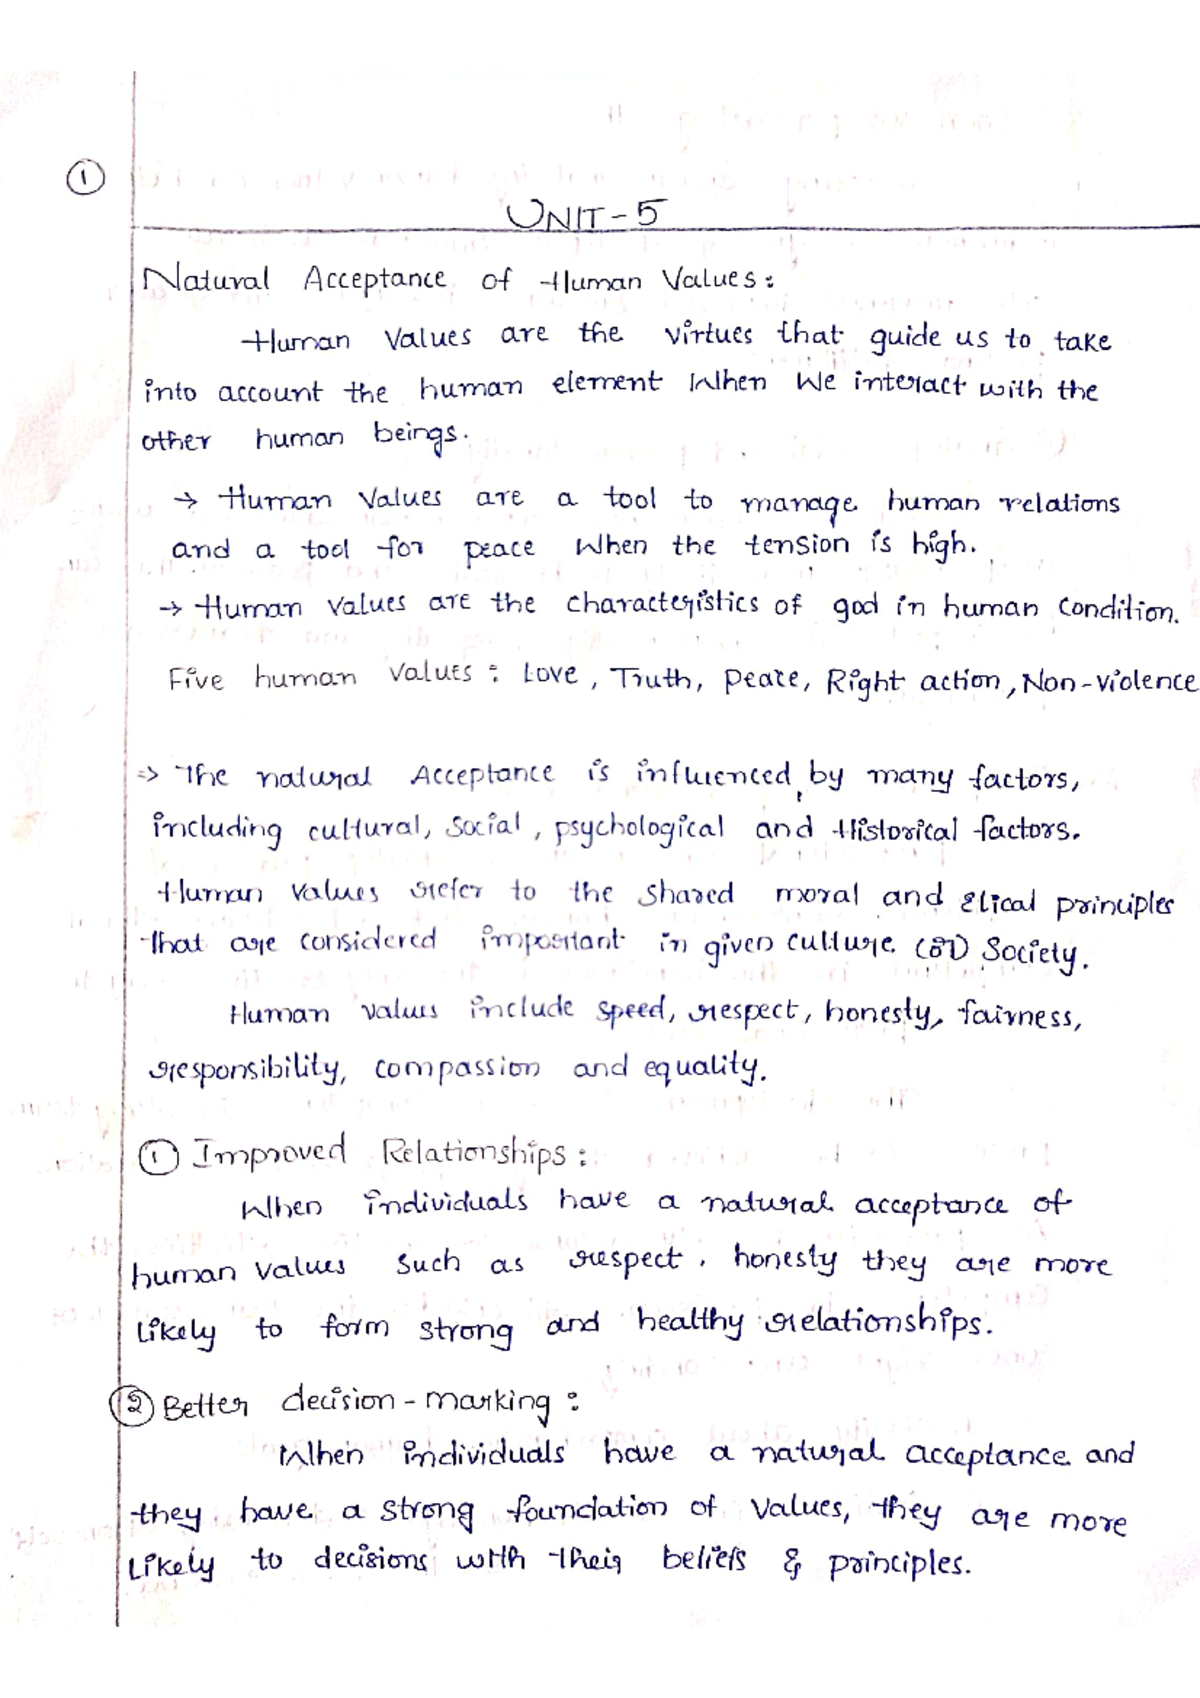 1
UNIT-5
Natural Acceptance of Human Values:
Human Values are the virtues that guide us to take
into account the human element When We interact with the
other human beings.
→ Human Values are a tool to manage human relations
and a tool for peace When the tension is high.
→ Human values are the characteristics of god in human Condition.
Five human values: Love, Truth, Peace, Right action, Non-violence
=> The natural Acceptance is influenced by many factors,
including cultural, Social, psychological and Historical factors.
Human values refer to the Shared moral and Etical principles
That are considered important in given culture (or) Society.
Human values include speed, respect, honesty, fairness,
responsibility, compassion and equality.
1 Improved Relationships:
When individuals have a natural acceptance of
human values Such as respect, honesty they are more
likely to form strong and healthy relationships.
2 Better decision-marking:
When individuals have a natural acceptance and
they have a strong foundation of values, they are more
likely to decisions with their beliefs & principles.